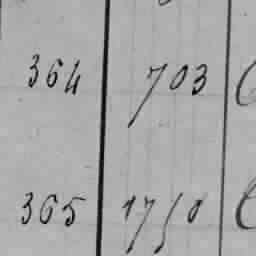 364 703
365 1750